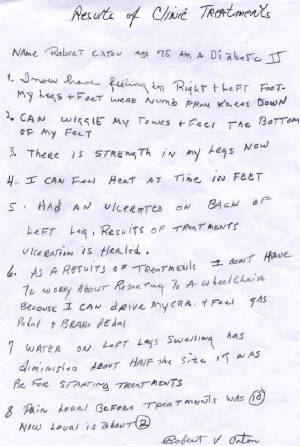 Results of Clinic Treatments
Name Robert Caton age 75 Am A Diabetic II
1. I now have feeling in Right + Left Foot.
My Legs + Feet were Numb From Knees Down
2. CAN Wiggle My Towes + Feel The Bottom
OF My Feet
3. There is STrength in my Legs Now
4. I CAN Feel Heat AT Time in FEET
5. HAD AN Ulcerated on BACK of
Left Leg, Results of Treatments
Ulceration is Healed.
6. As A Results of Treatments I dont Have
To worry About Resorting To A wheelChair
Becouse I can drive My Car. + Feel gas
Pedal + Brake Pedal
7 WATER on Left Legs Swelling has
diminished About Half the size it was
Be For Starting Treatments
8 Pain Level Before Treatments was 10
Now Level is about 2
Robert V Caton